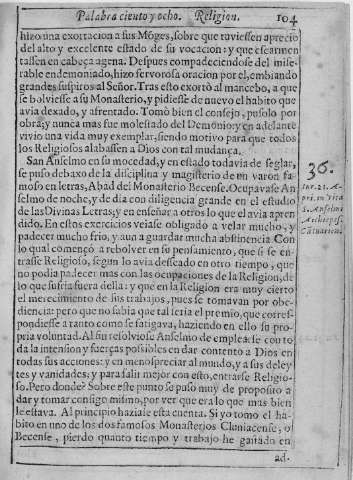 Palabra ciento y ocho. Religion. 104
hizo una exortacion a sus Mõges, sobre que tuviessen aprecio
del alto y excelente estado de su vocacion: y que escarmen
tassen en cabeça agena. Despues compadeciendose del mise-
rable endemoniado, hizo fervorosa oracion por el, embiando
grandes suspiros al Señor. Tras esto exortò al mancebo, a que
se bolviesse a su Monasterio, y pidiesse de nuevo el habito que
avia dexado, y afrentado. Tomò bien el consejo, pusolo por
obra; y nunca mas fue molestado del Demonio: y en adelante
vivio una vida muy exemplar, siendo motivo para que todos
los Religiosos alabassen a Dios con tal mudança.
San Anselmo en su mocedad, y en estado todavia de seglar,
se puso debaxo de la disciplina y magisterio de un varon fa-
moso en letras, Abad del Monasterio Becense. Ocupavase An
selmo de noche, y de dia con diligencia grande en el estudio
de las Divinas Letras; y en enseñar a otros lo que el avia apren
dido. En estos exercicios veiase obligado a velar mucho, y
padecer mucho frio, y aun a guardar mucha abstinencia Con
lo qual comencò a rebolver en su pensamiento, que si se en-
trasse Religioso, segun lo avia desseado en otro tiempo, que
no podia padecer mas con las ocupaciones de la Religion, de
lo que sufria fuera della: y que en la Religion era muy cierto
el merecimiento de sus trabajos, pues se tomavan por obe-
diencia: pero que no sabia que tal seria el premio, que corres-
pondiesse a tanto como se fatigava, haziendo en ello su pro-
pria voluntad. Al fin resolviose Anselmo de emplearse con to
da la intension y fuerças possibles en dar contento a Dios en
todas sus acciones: y en menospreciar al mundo, y a sus deley
tes y vanidades: y para salir mejor con esto, entrarse Religio-
so. Pero donde? Sobre este punto se puso muy de proposito a
dar y tomar consigo mismo, por ver que era lo que mas bien
le estava. Al principio haziase esta cuenta. Si yo tomo el ha-
bito en uno de los dos famosos Monasterios Cluniacense, o
Becense, pierdo quanto tiempo y trabajo he gastado en
ad-
36.
Sur. 21. A-
pri. in Vita
S. Anselmi
Archiepisc.
Cãtuarien.